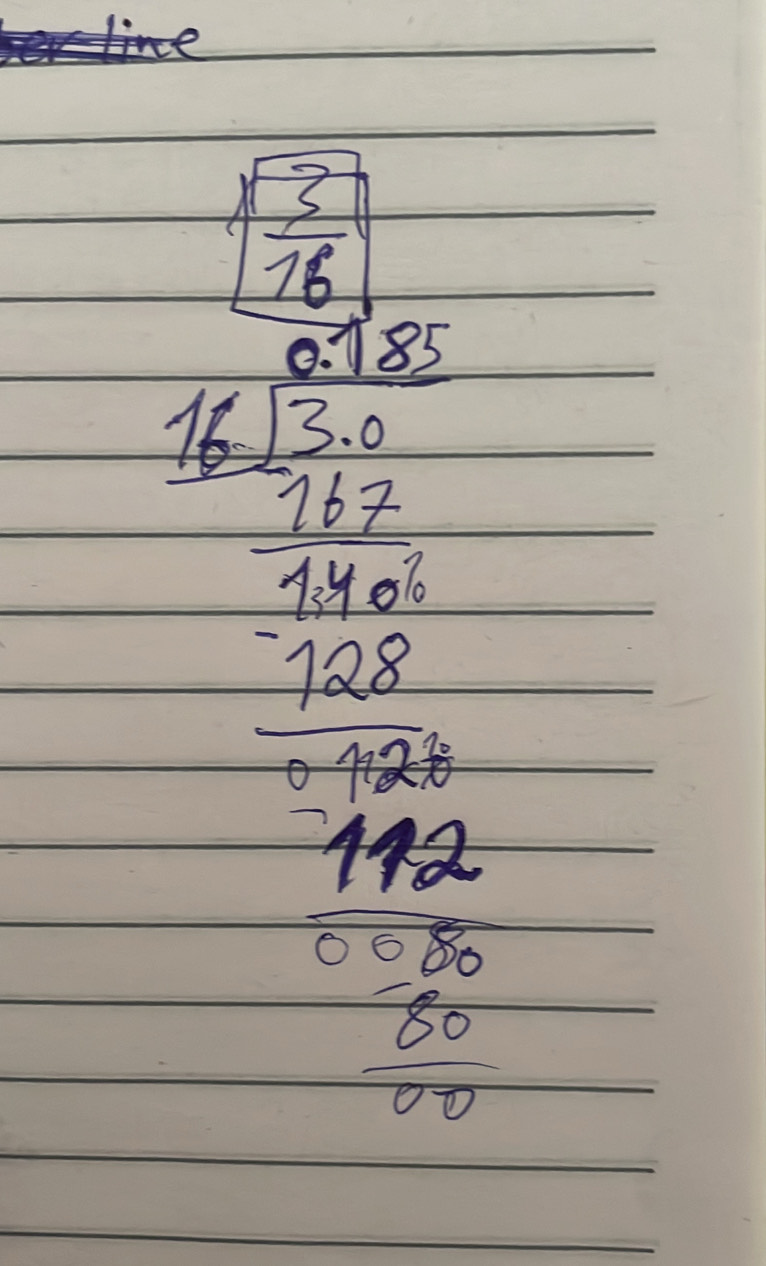 line
3
16
0.185
16 3.0
- 167
140
- 128
0 1120
- 112
0 0 80
- 80
00